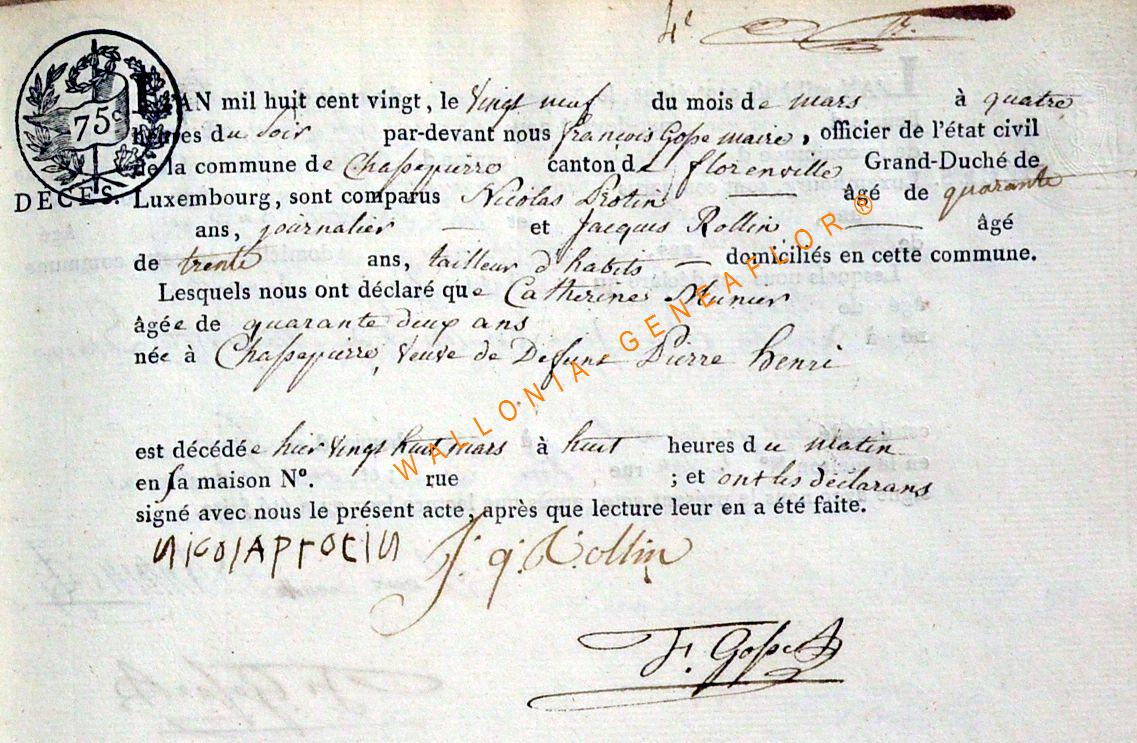 4e
75c
L'AN mil huit cent vingt, le vingt neuf du mois de mars à quatre
heures du soir par-devant nous françois Gosse maire, officier de l'état civil
de la commune de Chassepierre canton de florenville Grand-Duché de
DÉCÈS. Luxembourg, sont comparus Nicolas Protin âgé de quarante
ans, journalier et Jacques Rollin âgé
de trente ans, tailleur d'habits domiciliés en cette commune.
Lesquels nous ont déclaré que Catherine Munier
âgée de quarante deux ans
née à Chassepierre, veuve de Defunt Pierre henri
est décédée hier vingt huit mars à huit heures du matin
en sa maison N°. rue ; et ont les déclarans
signé avec nous le présent acte, après que lecture leur en a été faite.
NICOLAPROTIN J. q. Rollin
F. Gosse
WALLONIA GENEAFLOR®